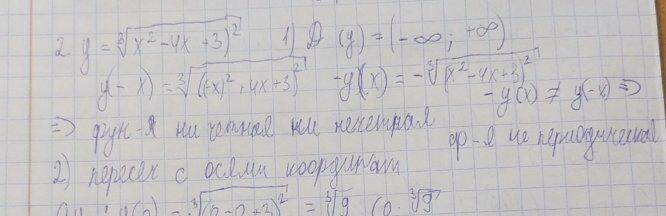 2. y = ∛(x² - 4x + 3)² 1) D (y) = (-∞; +∞)
y(-x) = ∛((-x)² + 4x + 3)² -y(x) = -∛(x² - 4x + 3)²
-y(x) ≠ y(-x) ⇒
⇒ фун-я ни четная ни нечетная ф-я не периодическая
2) пересеч с осями координат
y(0) = ∛(0 - 0 + 3)² = ∛9 (0; ∛9